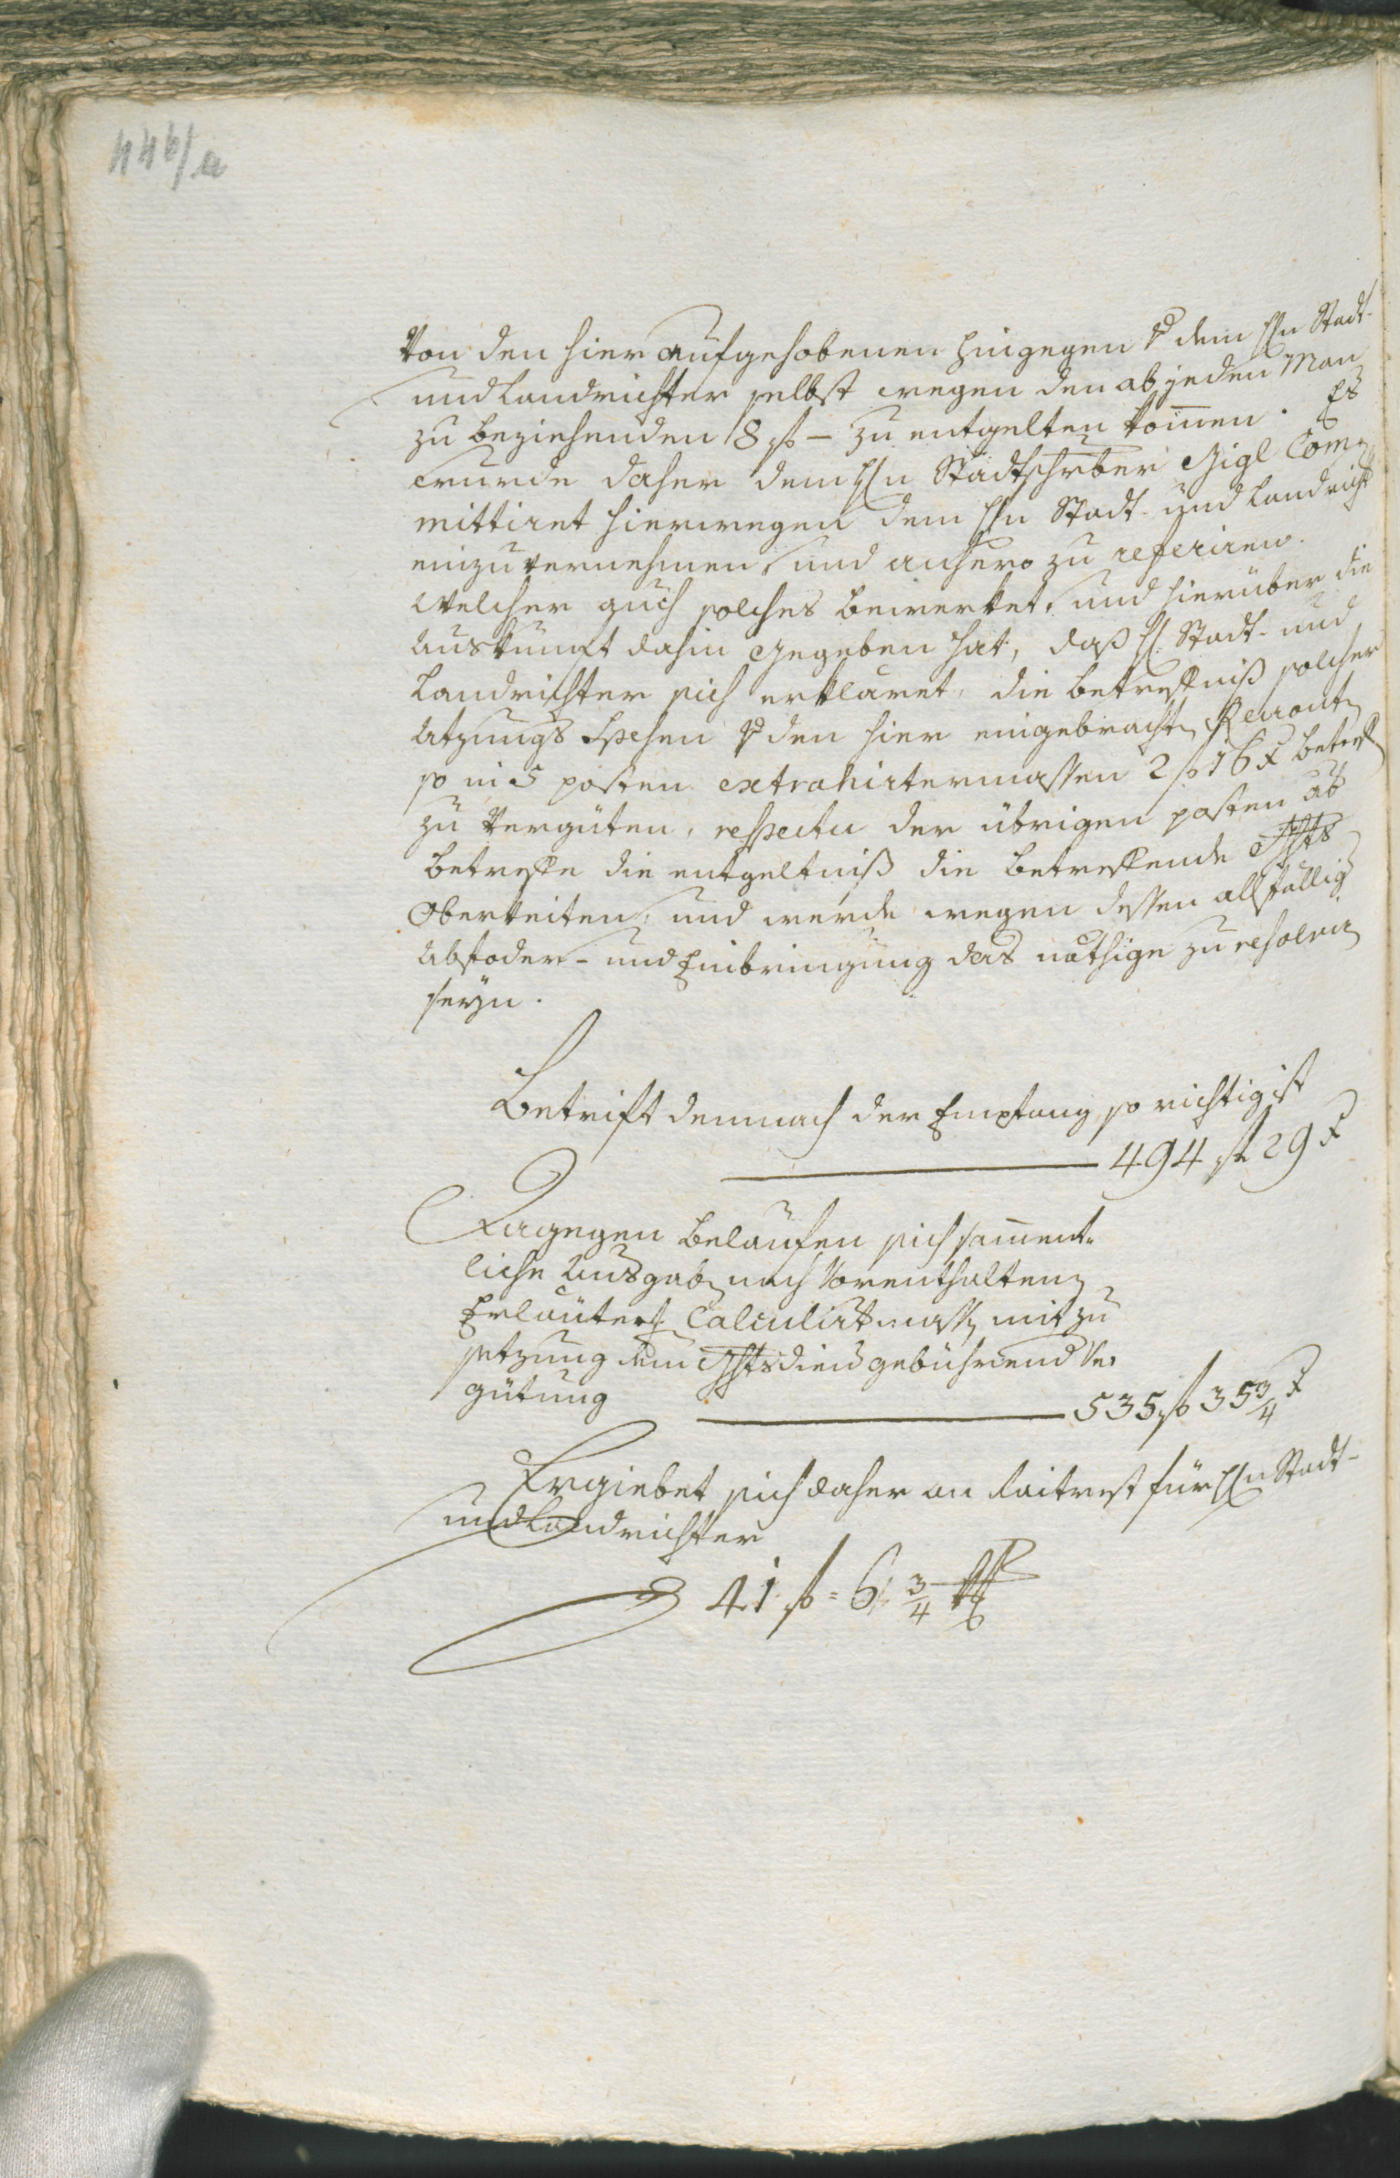 446/a
Von den hier aufgehobenen hingegen v dem Hln Stadt-
und Landrichter selbst wegen den ab jeden Man
zu beziehenden 8 f – zu entgelten kom̄en. Es
wurde daher dem Hln Stadtschrber Gigl Com-
mittiret hierwegen dem Hln Stadt- und Landricht
einzuvernehmen, und anhero zu referiren.
Welcher auch solches bewerket, und hierüber die
Auskunft dahin gegeben hat, daß Hl. Stadt- und
Landrichter sich erkläret, die betrefniß solcher
Atzungs Spesen v den hier eingebracht
so in 5 posten extrahirtermassen 2 f 16 x betref
zu vergüten, respectu der übrigen posten ab
betreffe die entgeltniß die betreffende Ghts
Oberkeiten, und werde wegen dessen allfällig
Abfoder- und Einbringung das nöthige zu resolvir
seyn.
Betrift demnach der Empfang so richtig ist
494 f 29 x
Dagegen belaufen sich sam̄ent-
liche Ausgab nach Vorenthalten
Erläutert Calculirtmass mit zu
setzung dem Ghtsdien gebührend Ver
gütung
535 f 35 3/4 x
Ergiebet sich daher an Raitrest für Hln Stadt-
und Landrichter
41 f = 6 3/4 x